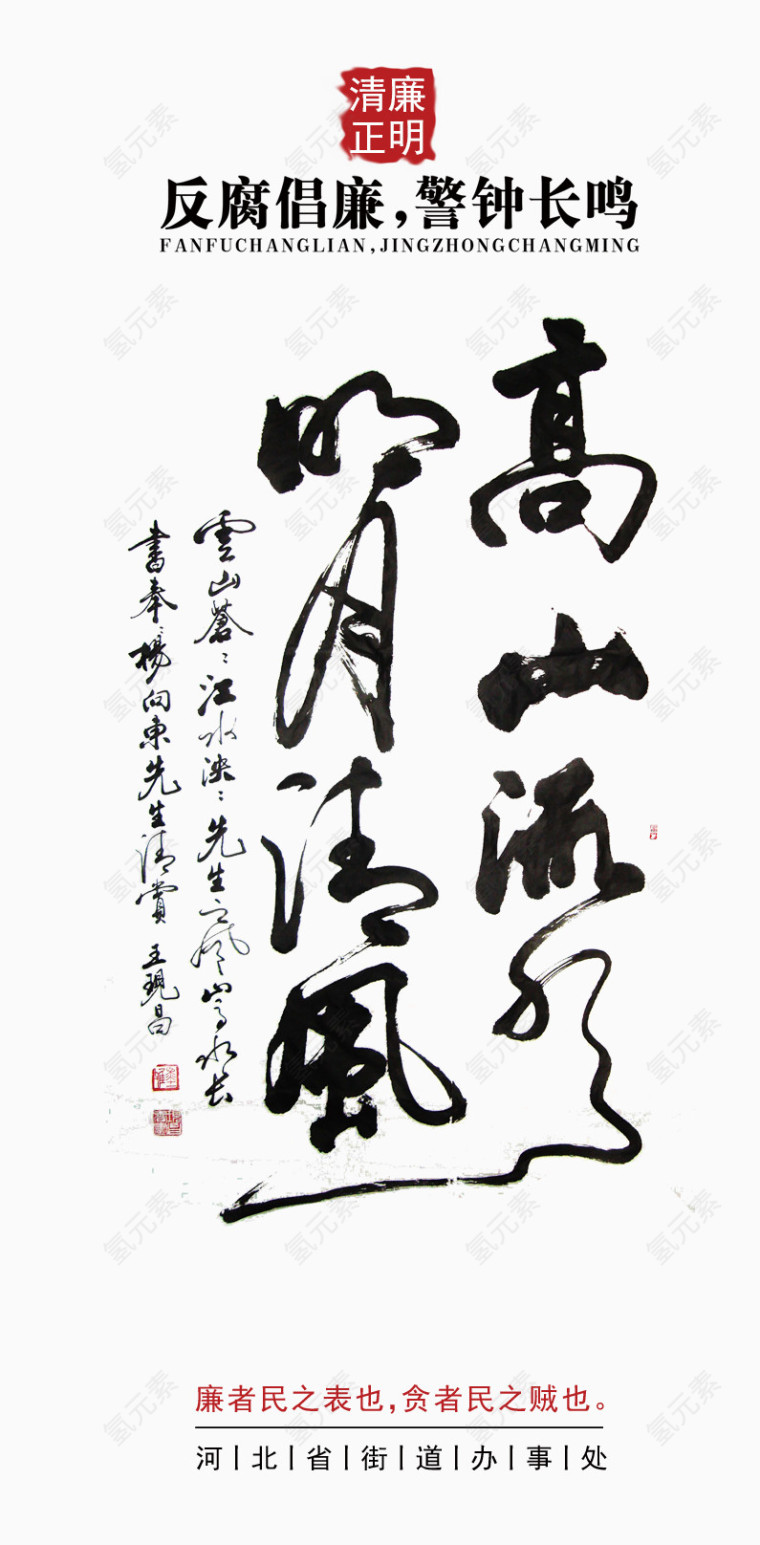 清廉
正明
反腐倡廉,警钟长鸣
FANFUCHANGLIAN,JINGZHONGCHANGMING
高山流水
明月清風
雲山蒼〻江水泱〻先生之風山高水长
書奉楊向東先生清賞 王現昌
廉者民之表也,贪者民之贼也。
河|北|省|街|道|办|事|处
氢元素